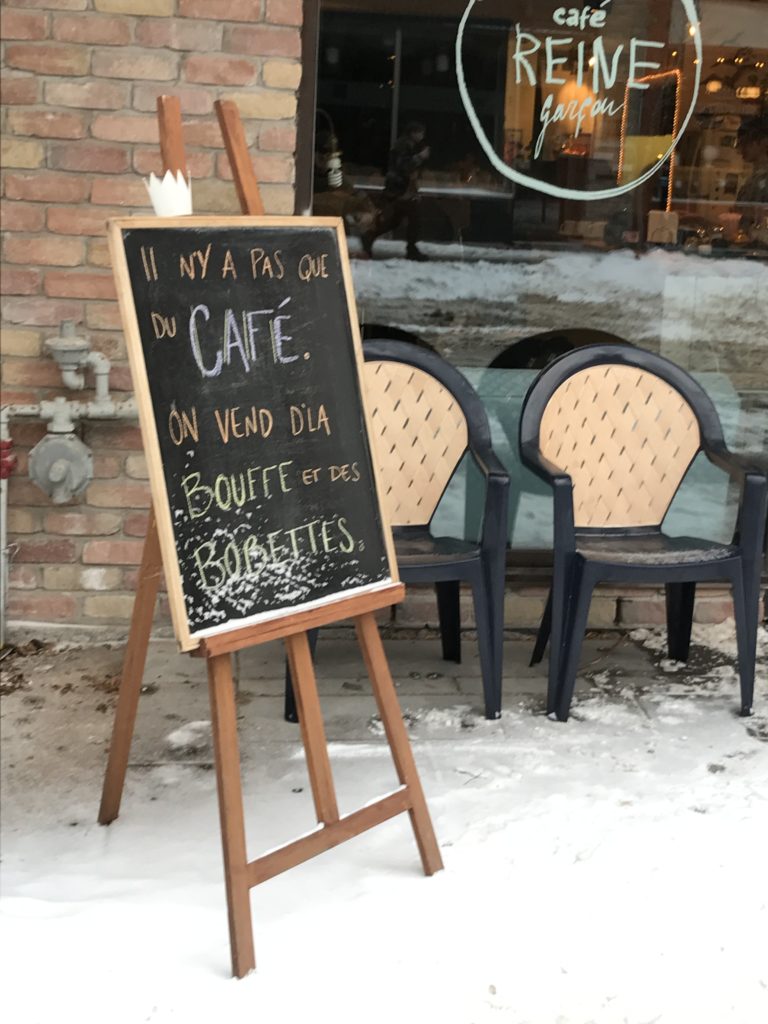 café
REINE
garçon
IL NY A PAS QUE
DU CAFÉ.
ON VEND D'LA
BOUFFE ET DES
BOBETTES.